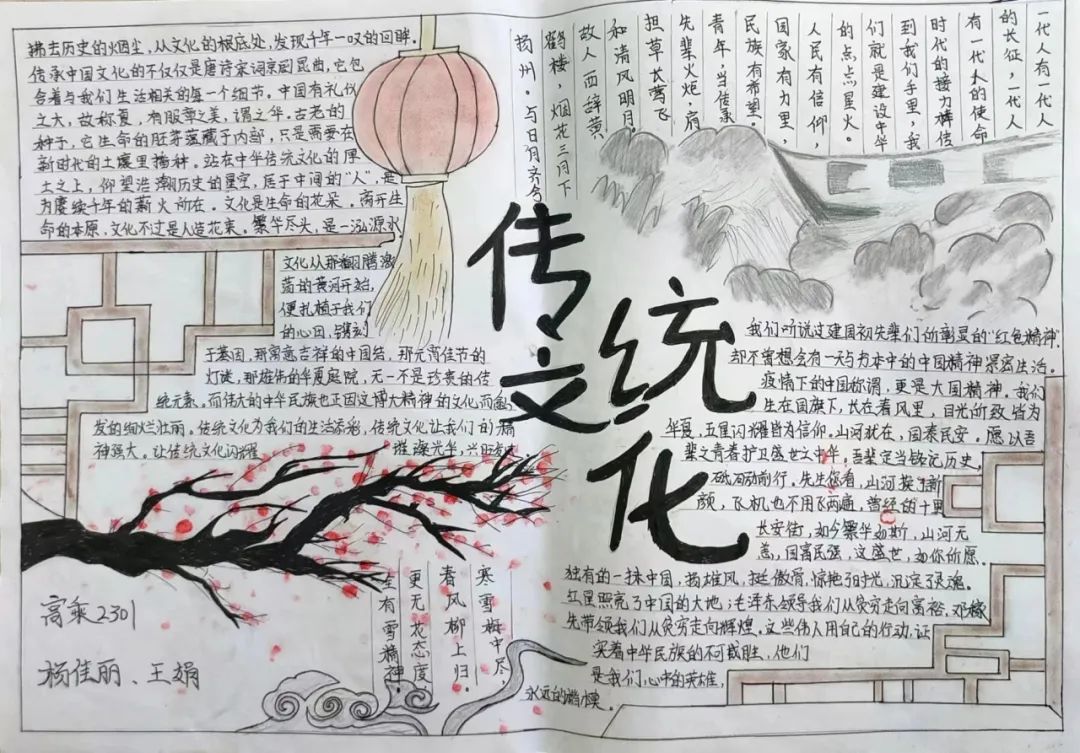 拂去历史的烟尘，从文化的根底处，发现千年一叹的回眸。
传承中国文化的不仅仅是唐诗宋词京剧昆曲，它包
含着与我们生活相关的每一个细节。中国有礼仪
之大，故称夏，有服章之美，谓之华。古老的
种子，它生命的胚芽蕴藏于内部，只是需要在
新时代的土壤里播种。站在中华传统文化的厚
土之上，仰望浩瀚历史的星空，居于中间的“人”，是
为赓续千年的薪火所在。文化是生命的花朵。离开生
命的本原，文化不过是人造花束。繁华尽头，是一泓源水
文化从那翻腾激
荡的黄河开始，
便扎植于我们
的心田，镌刻
于基因，那寓意吉祥的中国结，那元宵佳节的
灯谜，那雄伟的华夏庭院，无一不是珍贵的传
统元素。而伟大的中华民族也正因这博大精神的文化而
发的绚烂壮丽。传统文化为我们的生活添彩，传统文化让我们的精
神强大。让传统文化闪耀
璀璨光华，兴旺
传统
文化
一代人有一代人
的长征，一代人
有一代人的使命
时代的接力棒传
到我们手里，我
们就是建设中华
的点点星火。
人民有信仰，
国家有力量，
民族有希望，
青年，当传承
先辈火炬，肩
担草长莺飞
和清风明月。
故人西辞黄
鹤楼，烟花三月下
扬州。与日月齐夸
我们听说过建国初先辈们所彰显的“红色精神”
却不曾想会有一天与为本中的中国精神紧密生活。
疫情下的中国称谓，更是大国精神。我们
生在国旗下，长在春风里，目光所致皆为
华夏，五星闪耀皆为信仰。山河犹在，国泰民安。愿以吾
辈之青春护卫盛世之中华。吾辈定当铭记历史，
砥砺前行。先生您看，山河换了新
颜，飞机也不用飞两遍，曾经的十里
长安街，如今繁华如斯，山河无
恙，国富民强，这盛世，如你所愿。
独有的一抹中国，扬雄风，挺傲骨，惊艳了时光，沉淀了灵魂。
红星照亮了中国的大地；毛泽东领导我们从贫穷走向富裕，邓稼
先带领我们从贫穷走向辉煌。这些伟人用自己的行动，证
实着中华民族的不可战胜，他们
是我们心中的英雄，
永远的楷模。
寒雪梅中尽
春风柳上归。
更无花态度
全有雪精神。
高乘2301
杨佳丽、王娟